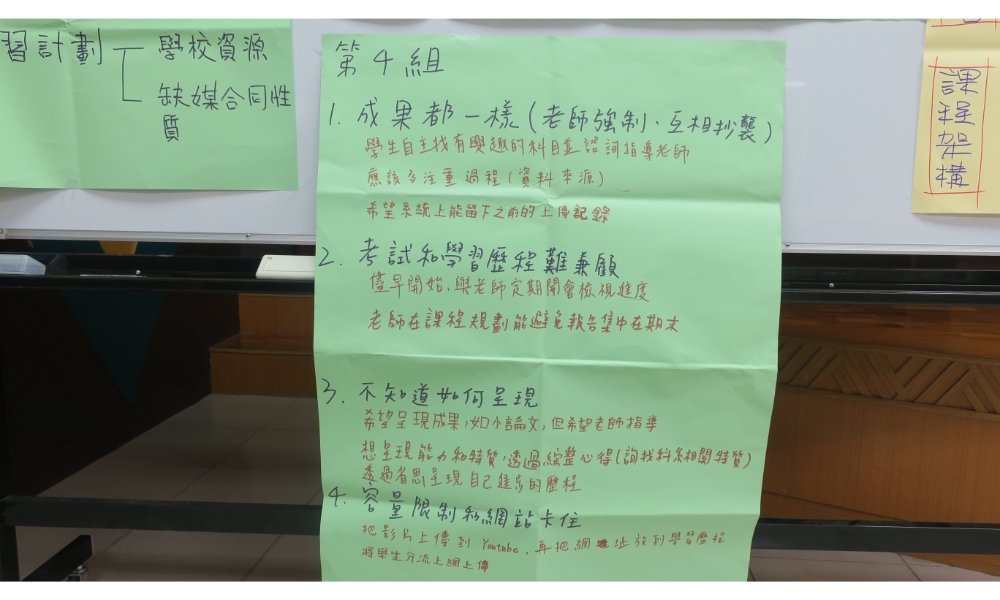 習計劃
學校資源
缺媒合同性
質
第4組
1. 成果都一樣(老師強制、互相抄襲)
學生自主找有興趣的科目並諮詢指導老師
應該多注重過程(資料來源)
希望系統上能留下之前的上傳記錄
2. 考試和學習歷程難兼顧
儘早開始,與老師定期開會檢視進度
老師在課程規劃能避免報告集中在期末
3. 不知道如何呈現
希望呈現成果,如小論文,但希望老師指導
想呈現能力和特質,透過綜整心得(詢找科系相關特質)
透過省思呈現自己進步的歷程
4. 容量限制和網站卡住
把影片上傳到 Youtube,再把網址放到學習歷程
將學生分流上網上傳
課程架構